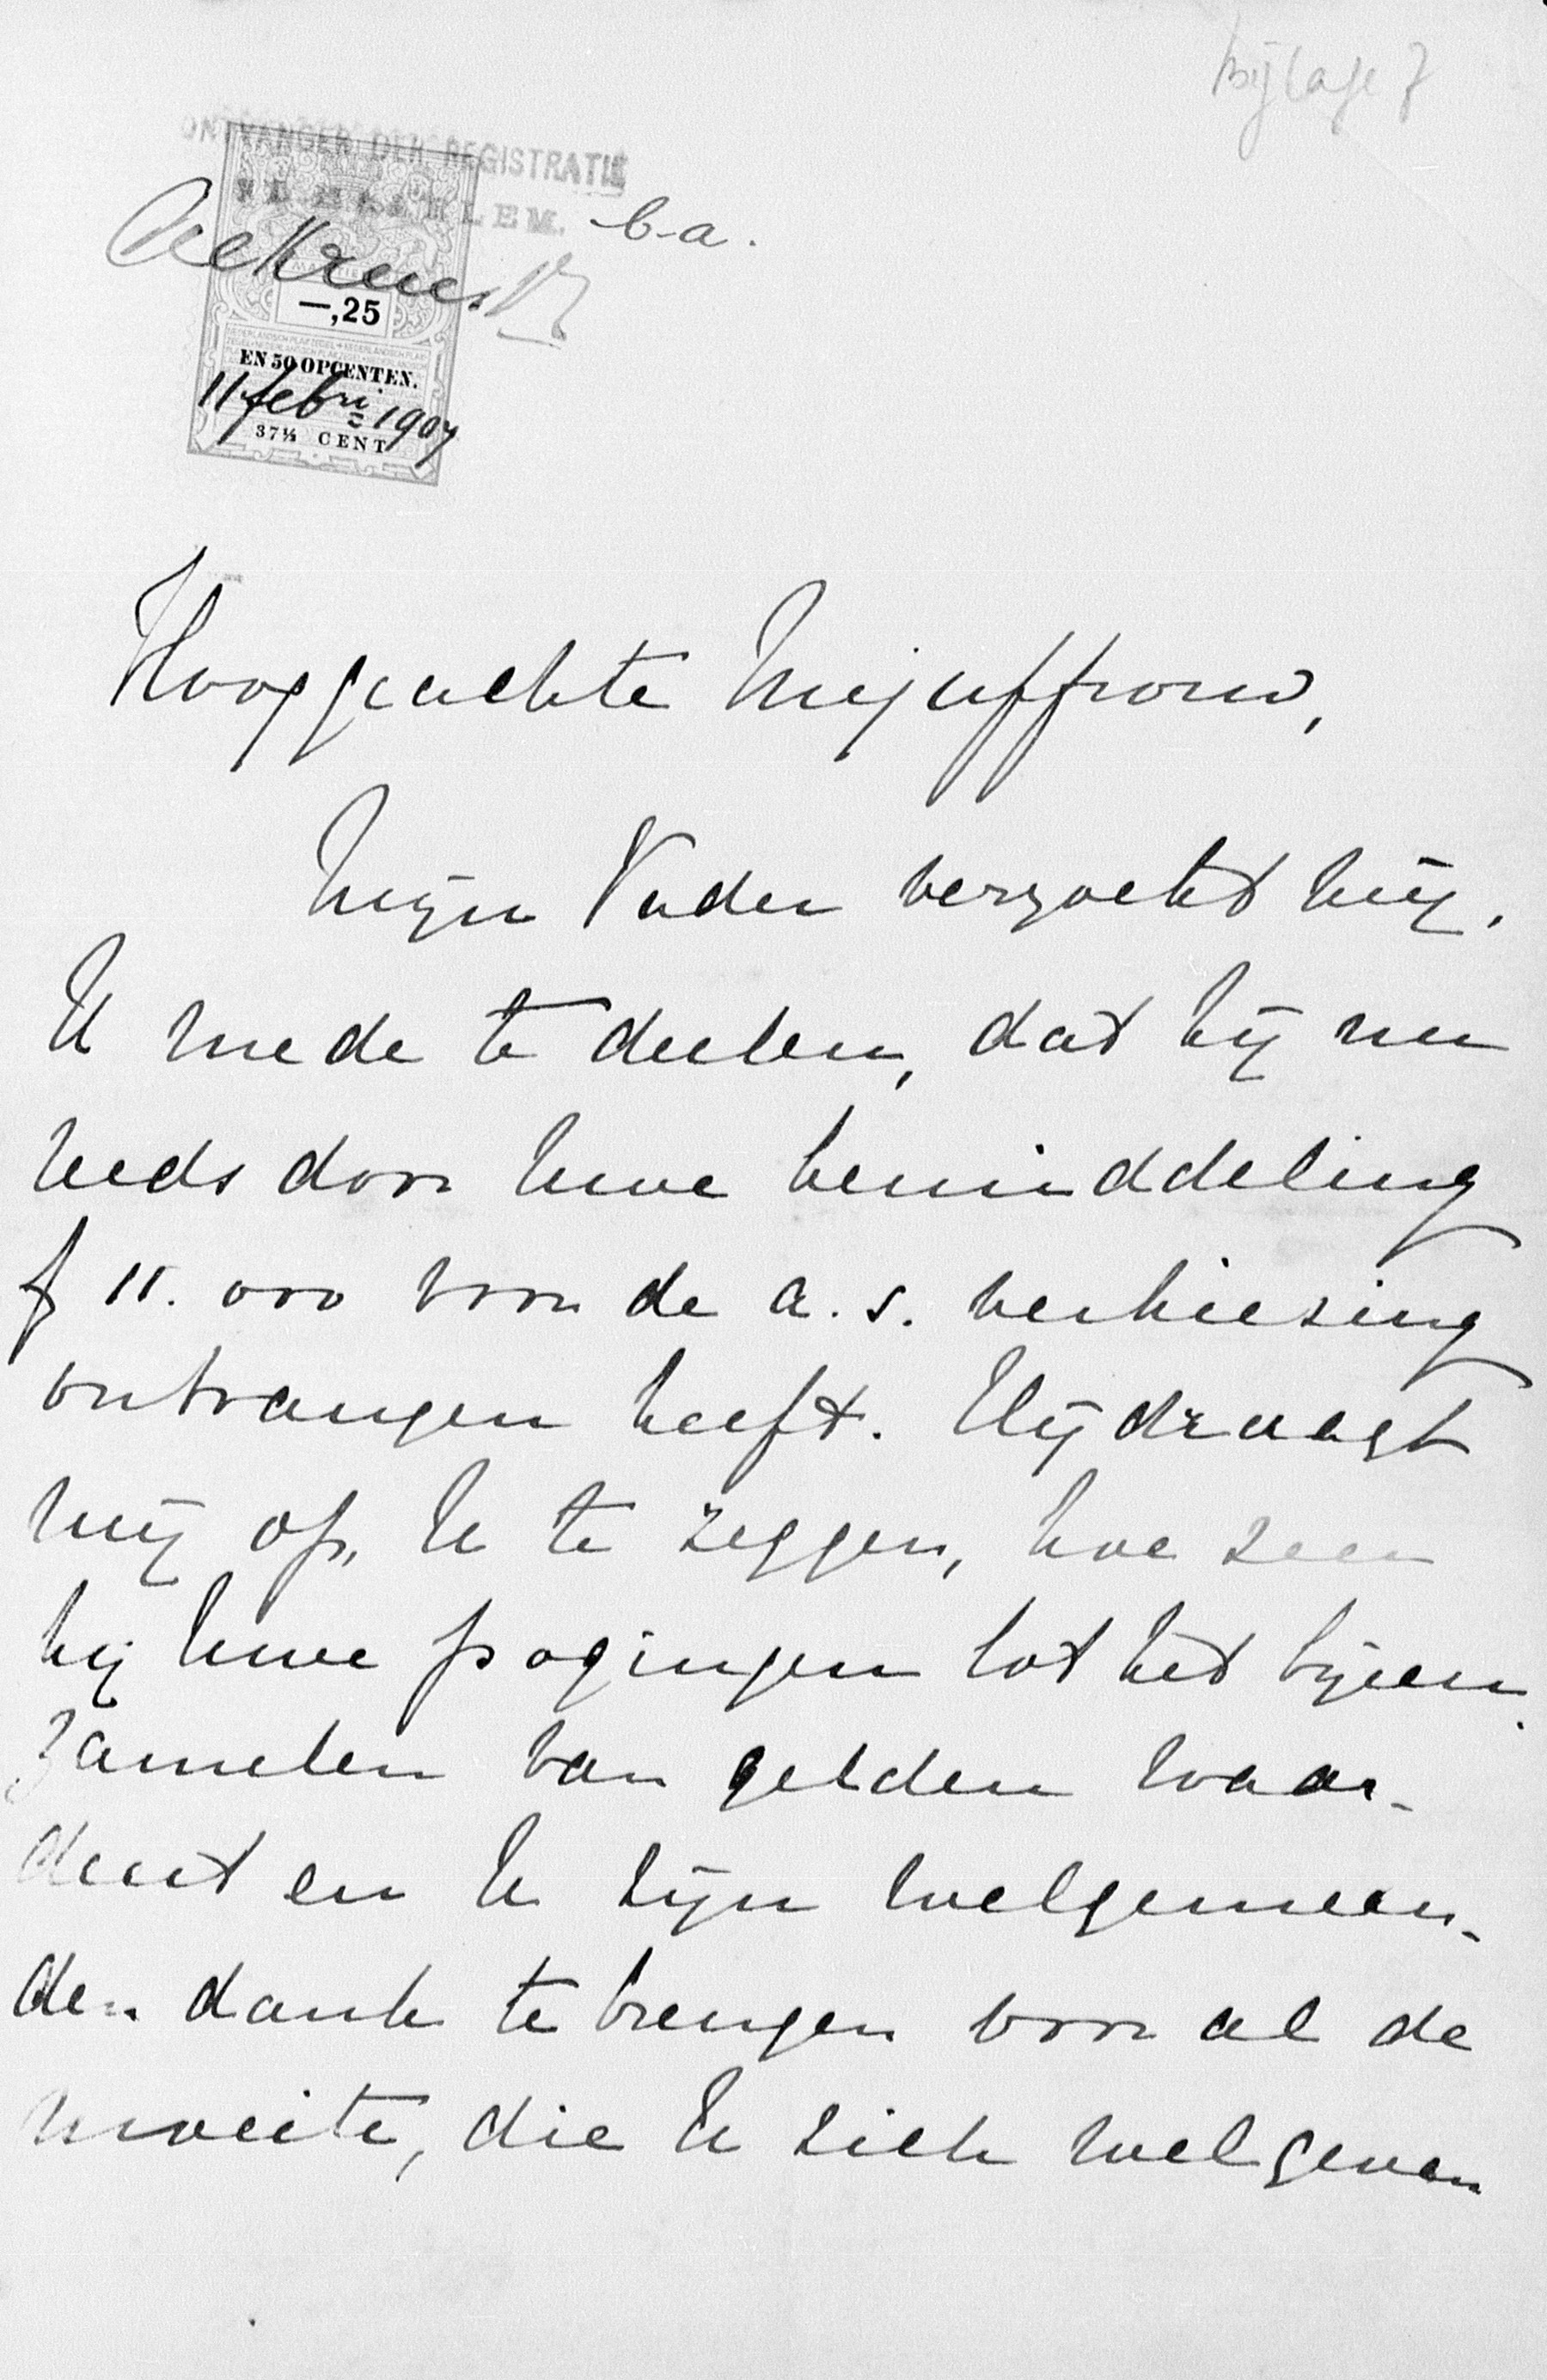 bijlage 7
ONTVANGER DER REGISTRATIE
b.a.
—,25
EN 50 OPCENTEN.
11 febri 1907
37½ CENT
Hooggeachte Mejuffrouw,
Mijn Vader verzocht mij,
U mede te deelen, dat hij nu
reeds door Uwe bemiddeling
f 11.000 voor de a.s. verkiezing
ontvangen heeft. Hij draagt
mij op, U te zeggen, hoe zeer
hij Uwe pogingen tot het bijeen
zamelen van gelden waar-
deert en U zijn welgemeen-
den dank te brengen voor al de
moeite, die U zich wel geven